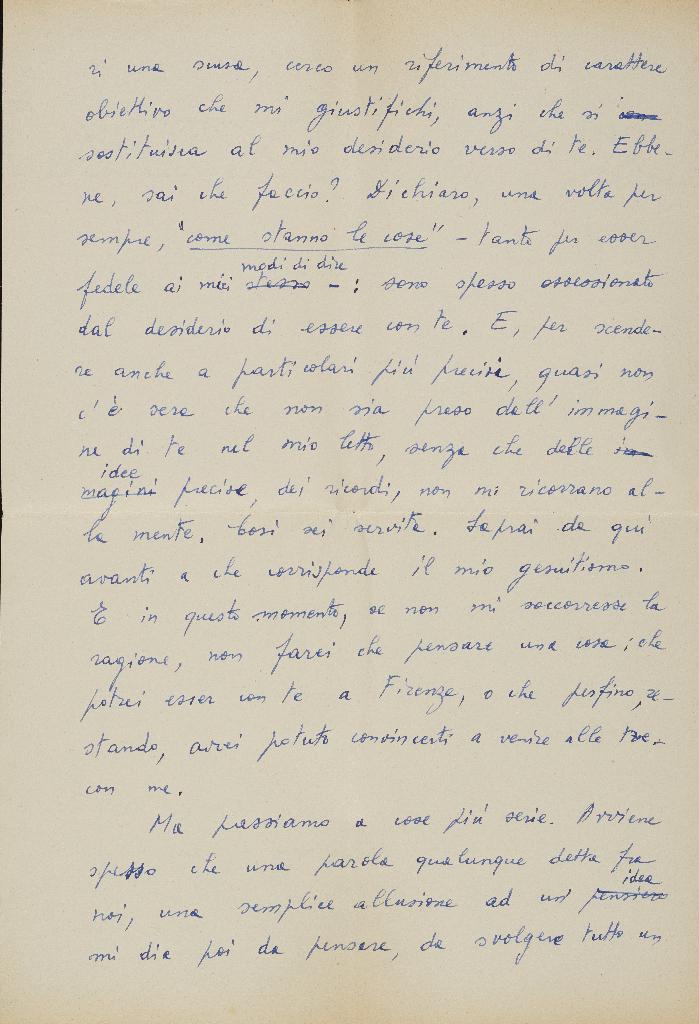 ri una scusa, cerco un riferimento di carattere
obiettivo che mi giustifichi, anzi che si
sostituisca al mio desiderio verso di te. Ebbe-
ne, sai che faccio? Dichiaro, una volta per
sempre, "come stanno le cose" – tanto per esser
modi di dire
fedele ai miei stesso – : sono spesso ossessionato
dal desiderio di essere con te. E, per scende-
re anche a particolari più precisi, quasi non
c'è sera che non sia preso dall'immagi-
ne di te nel mio letto, senza che delle im-
idee
magini precise, dei ricordi, non mi ricorrano al-
la mente. Così sei servita. Saprai da qui
avanti a che corrisponde il mio gesuitismo.
E in questo momento, se non mi soccorresse la
ragione, non farei che pensare una cosa; che
potrei esser con te a Firenze, o che perfino, re-
stando, avrei potuto convincerti a venire alle
con me.
Ma passiamo a cose più serie. Avviene
spesso che una parola qualunque detta fra
idea
noi, una semplice allusione ad un' pensiero
mi dia poi da pensare, da svolgere tutto un